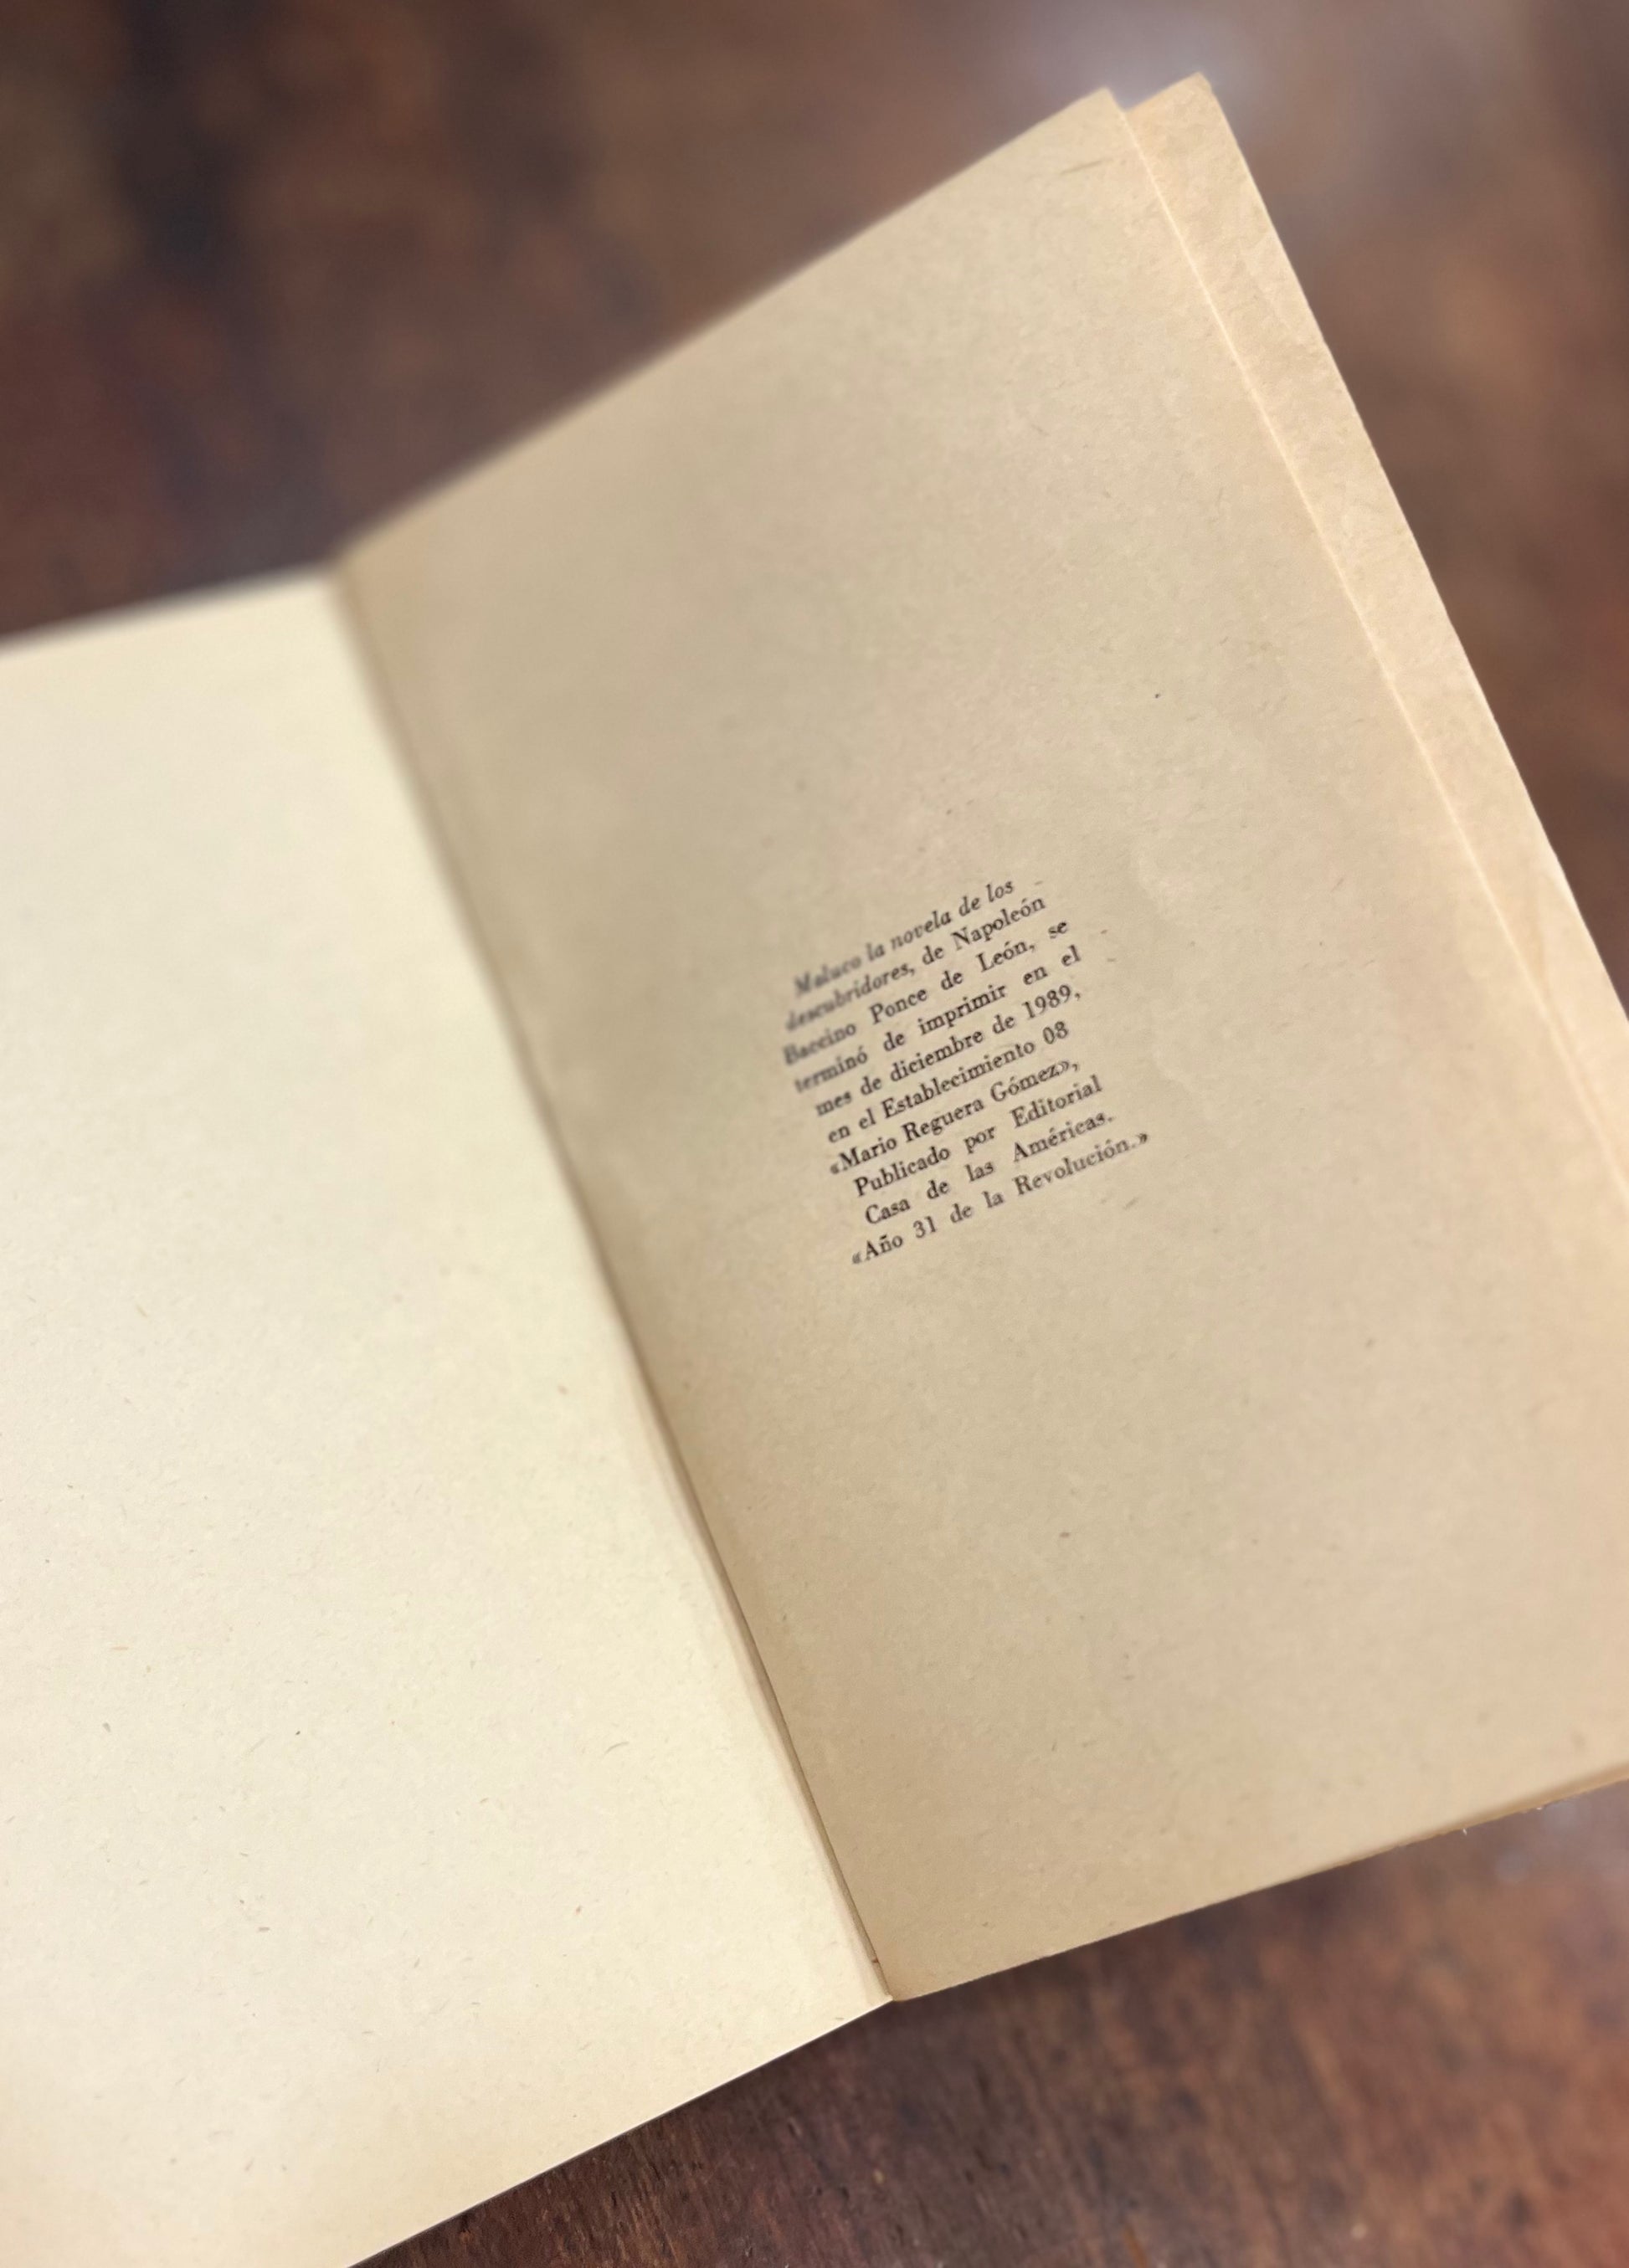 Maluco la novela de los
descubridores, de Napoleón
Baccino Ponce de León, se
terminó de imprimir en el
mes de diciembre de 1989,
en el Establecimiento 08
«Mario Reguera Gómez»,
Publicado por Editorial
Casa de las Américas.
«Año 31 de la Revolución.»